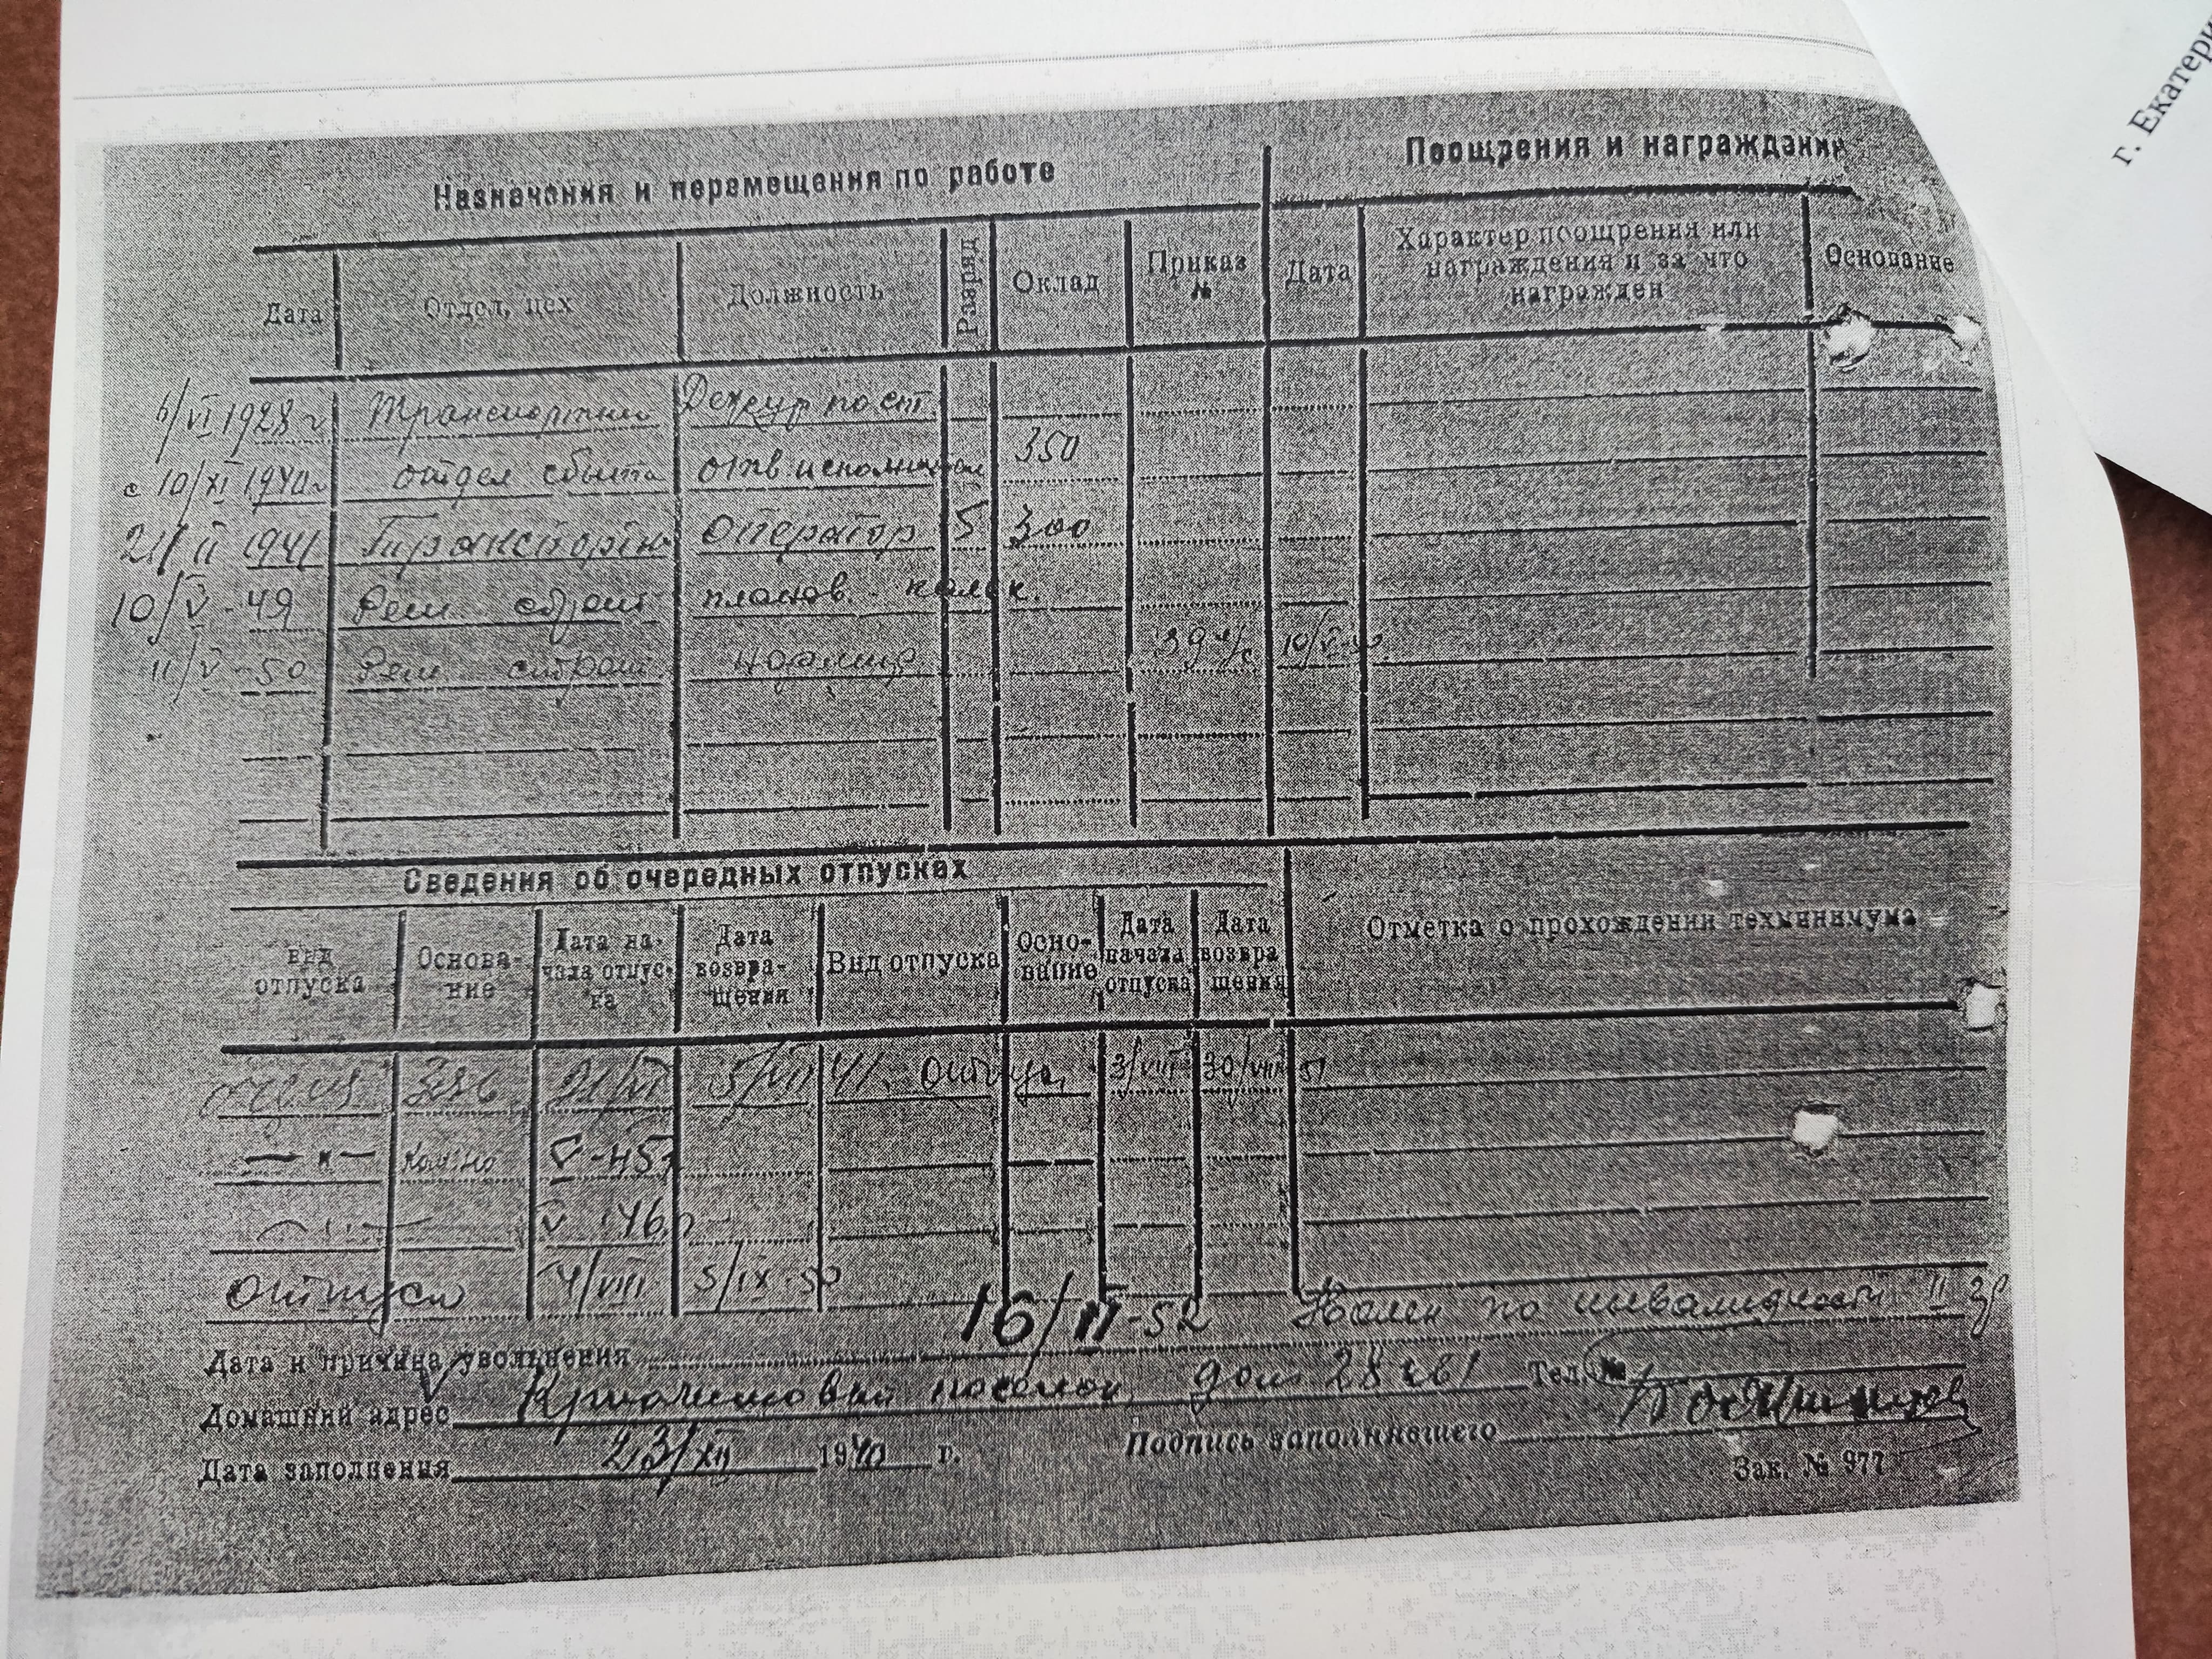 г. Екатери
Назначения и перемещения по работе
Поощрения и награждения
Дата Отдел, цех Должность Разряд Оклад Приказ № Дата Характер поощрения или награждения и за что награжден Основание
6/VI 1928 г Транспортный Дежур по ст.
с 10/XI 1940г отдел сбыта отв. исполнителя 350
21/II 1941 Транспортн Оператор 5 300
10/V-49 Рем строит планов.
11/V-50 Рем строит Нормир 39 ч/с 10/V-50
Сведения об очередных отпусках
Вид отпуска Основание Дата начала отпуска Дата возвращения Вид отпуска Основание Дата начала отпуска Дата возвращения Отметка о прохождении техминимума
21/VI 5/VII 41. Отпуск 3/VIII 30/VIII 51
— " — V-45
V-46
Отпуск 4/VIII 5/IX-50
16/II-52 по инвалидности II гр
Дата и причина увольнения
Домашний адрес поселок, дом 28 кв 1 Тел. №
Дата заполнения 23/XII 1940 г. Подпись заполнившего
Зак. № 977